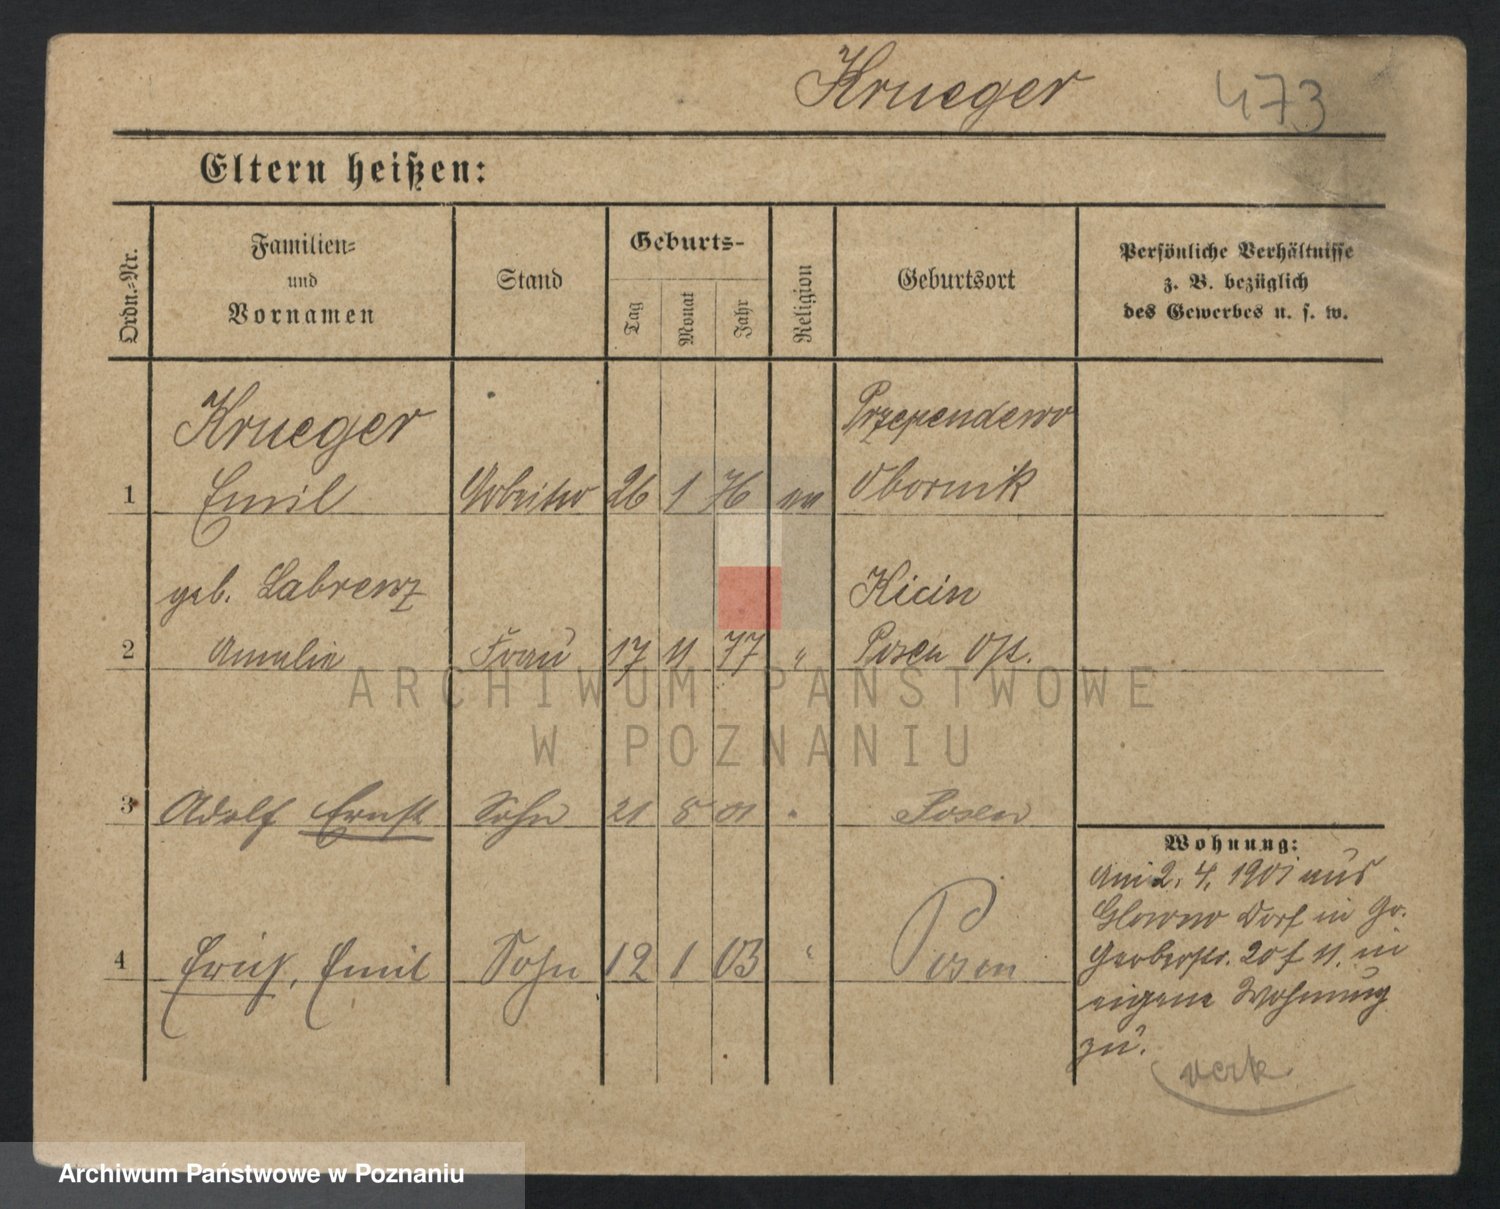 Krueger 473
Eltern heißen:
Ordn.-Nr.
Familien-
und
Vornamen
Stand
Geburts-
Tag
Monat
Jahr
Religion
Geburtsort
Persönliche Verhältnisse
z. B. bezüglich
des Gewerbes u. s. w.
Krueger Przependowo
1 Emil Arbeiter 26 1 76 ev Obornik
geb. Labrenz Kicin
2 Amalie Frau 17 11 77 " Posen Ost.
ARCHIWUM PAŃSTWOWE
W POZNANIU
3 Adolf Ernst Sohn 21 8 01 " Posen
4 Erich, Emil Sohn 12 1 03 " Posen
Wohnung:
Am 2. 4. 1901 aus
Glowno Dorf in Gr.
Gerberstr. 20 f 11. in
eigene Wohnung
zu.
verk
Archiwum Państwowe w Poznaniu